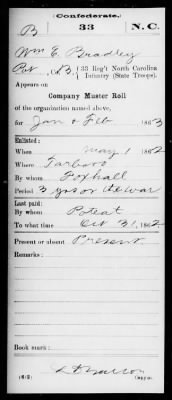 (Confederate.)
B 33 N.C.
Wm E. Bradley
Pvt, Co. B, 33 Reg't North Carolina
Infantry (State Troops).
Appears on
Company Muster Roll
of the organization named above,
for Jan & Feb 1863
Enlisted:
When May 1 1862
Where Tarboro
By whom Foxhall
Period 3 yrs or the war
Last paid:
By whom Poteat
To what time Oct 31, 1862
Present or absent Present
Remarks:
Book mark:
(642)
Copyist.